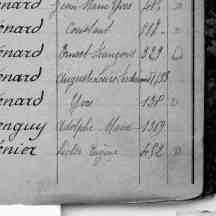 énard Jean Marie Yves 483 "
énard Constant 518 "
énard Ernest François 329
énard Auguste Louis
énard Yves 158 "
enguy Adolphe Marie 1319
énier Victor Eugène 432 "